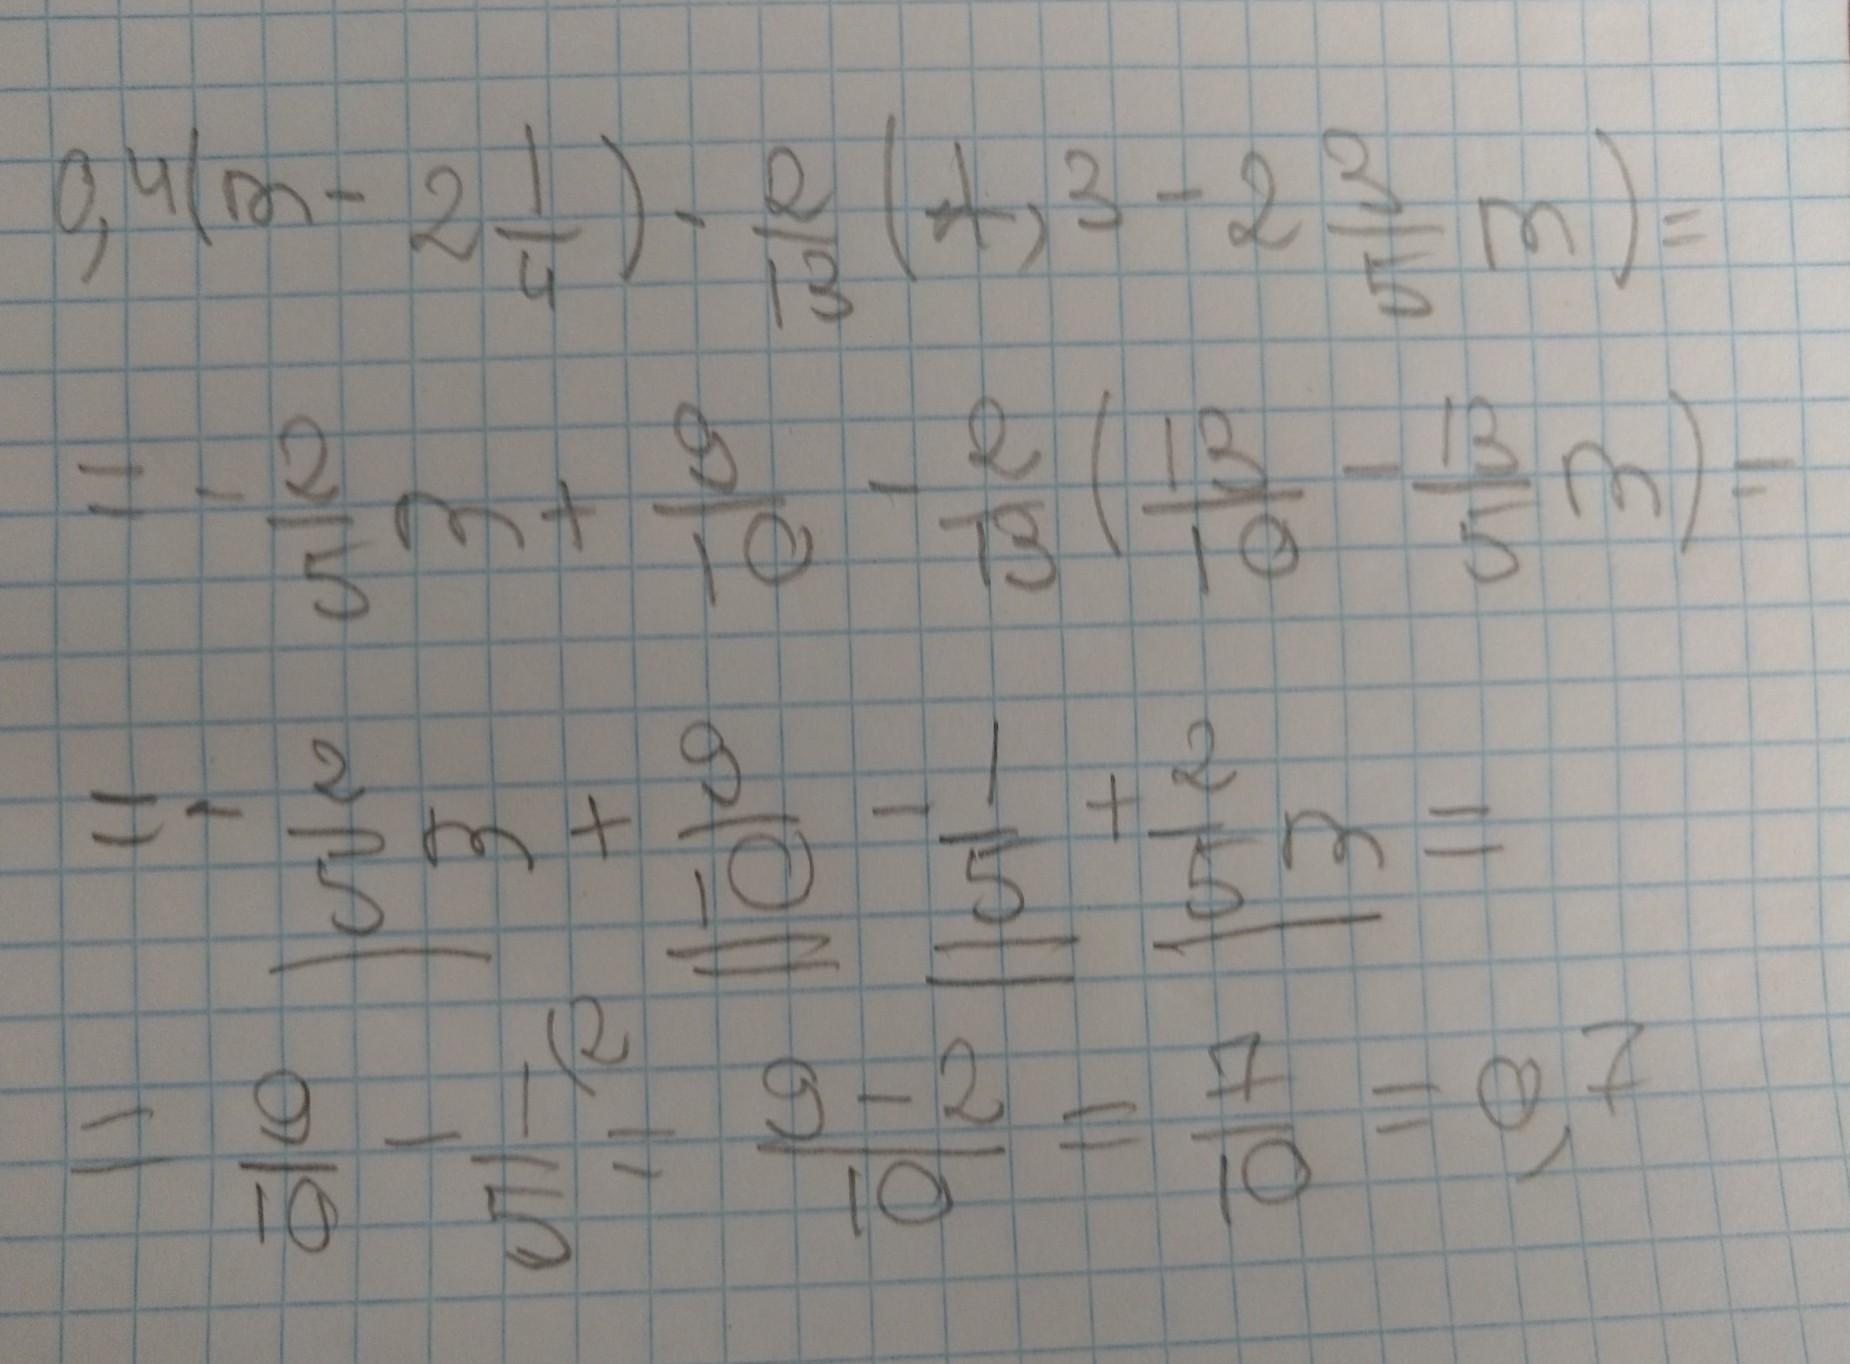 0,4(m - 2 1/4) - 2/13 (1,3 - 2 3/5 m) =
= - 2/5 m + 9/10 - 2/13 (13/10 - 13/5 m) =
= - 2/5 m + 9/10 - 1/5 + 2/5 m =
= 9/10 - 1/5 (2 = 9-2/10 = 7/10 = 0,7